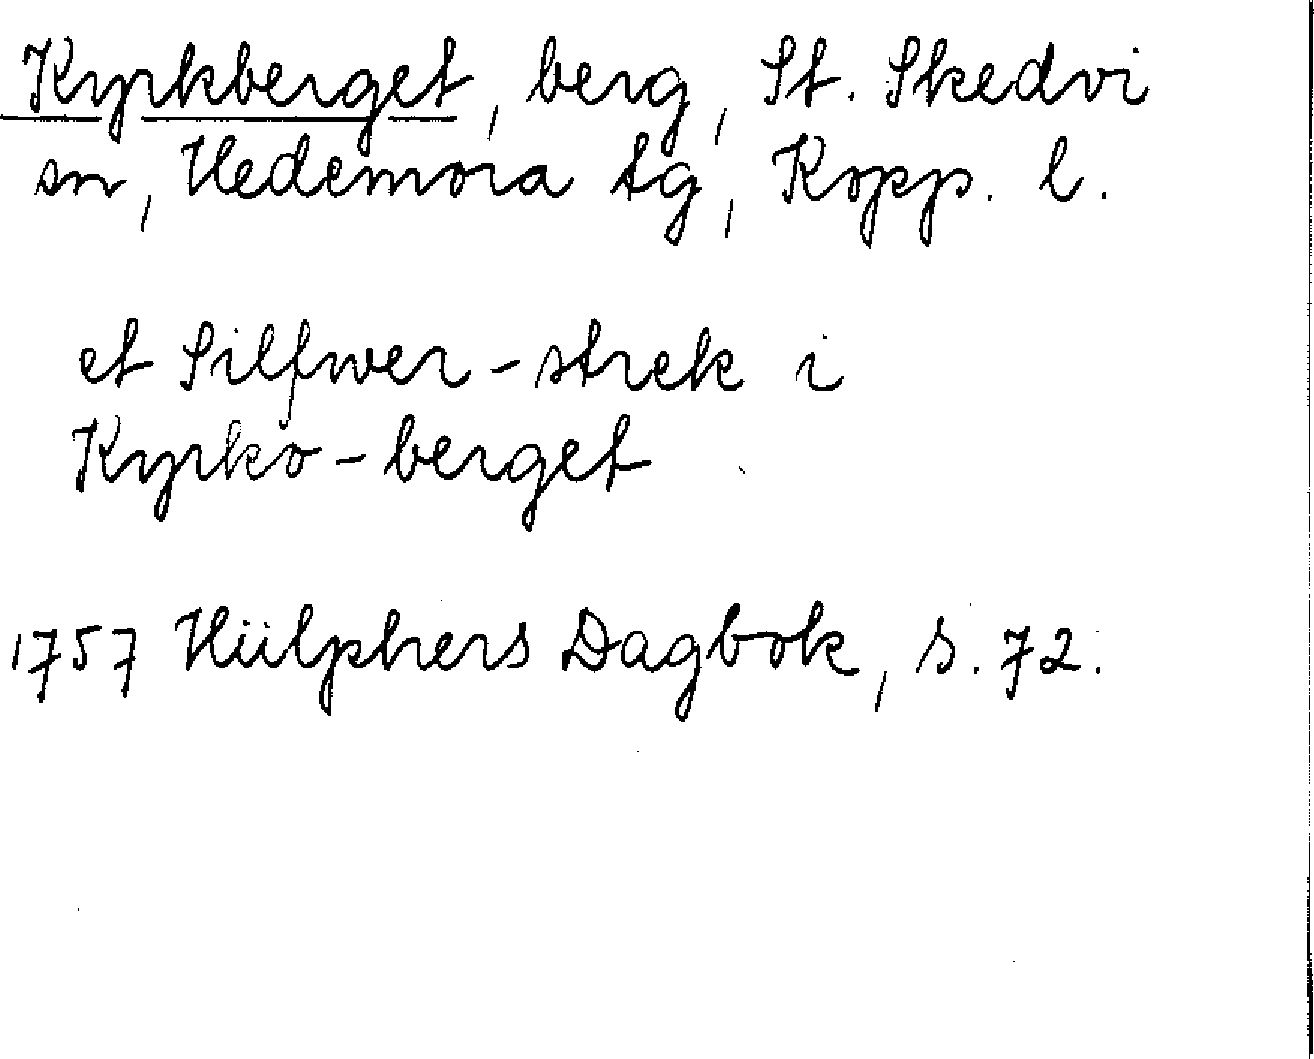 Kyrkberget, berg, St. Skedvi
sn, Hedemora tg, Kopp. l.
et Silfwer-strek i
Kyrko-berget
1757 Hülphers Dagbok, s. 72.